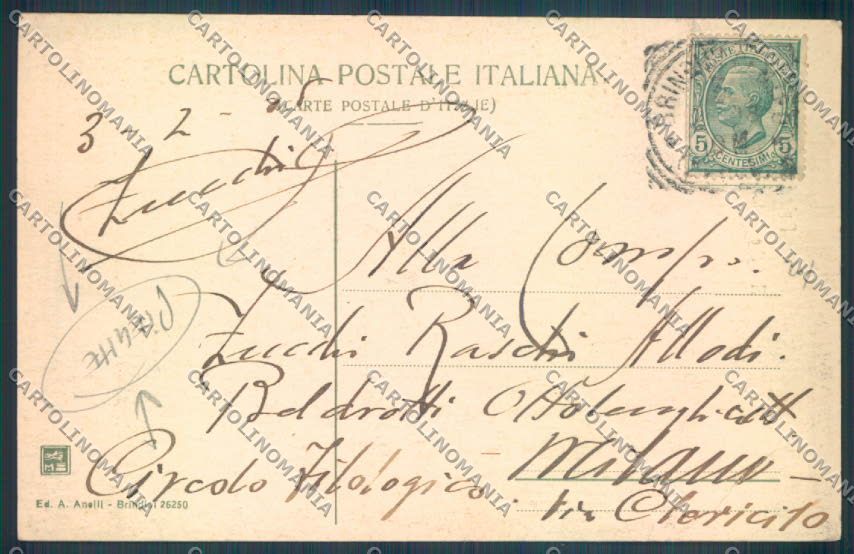 CARTOLINA POSTALE ITALIANA
(CARTE POSTALE D'ITALIE)
3 - 2 -
Zucchi
BRINDISI
POSTE ITALIANE
5 CENTESIMI 5
Alla Comp.
Zucchi Raschi Allodi.
Beldrotti Ottolenghi
Circolo Filologico. Milano -
Via Clericito
Ed. A. Anelli - Brindisi 26250
CARTOLINOMANIA